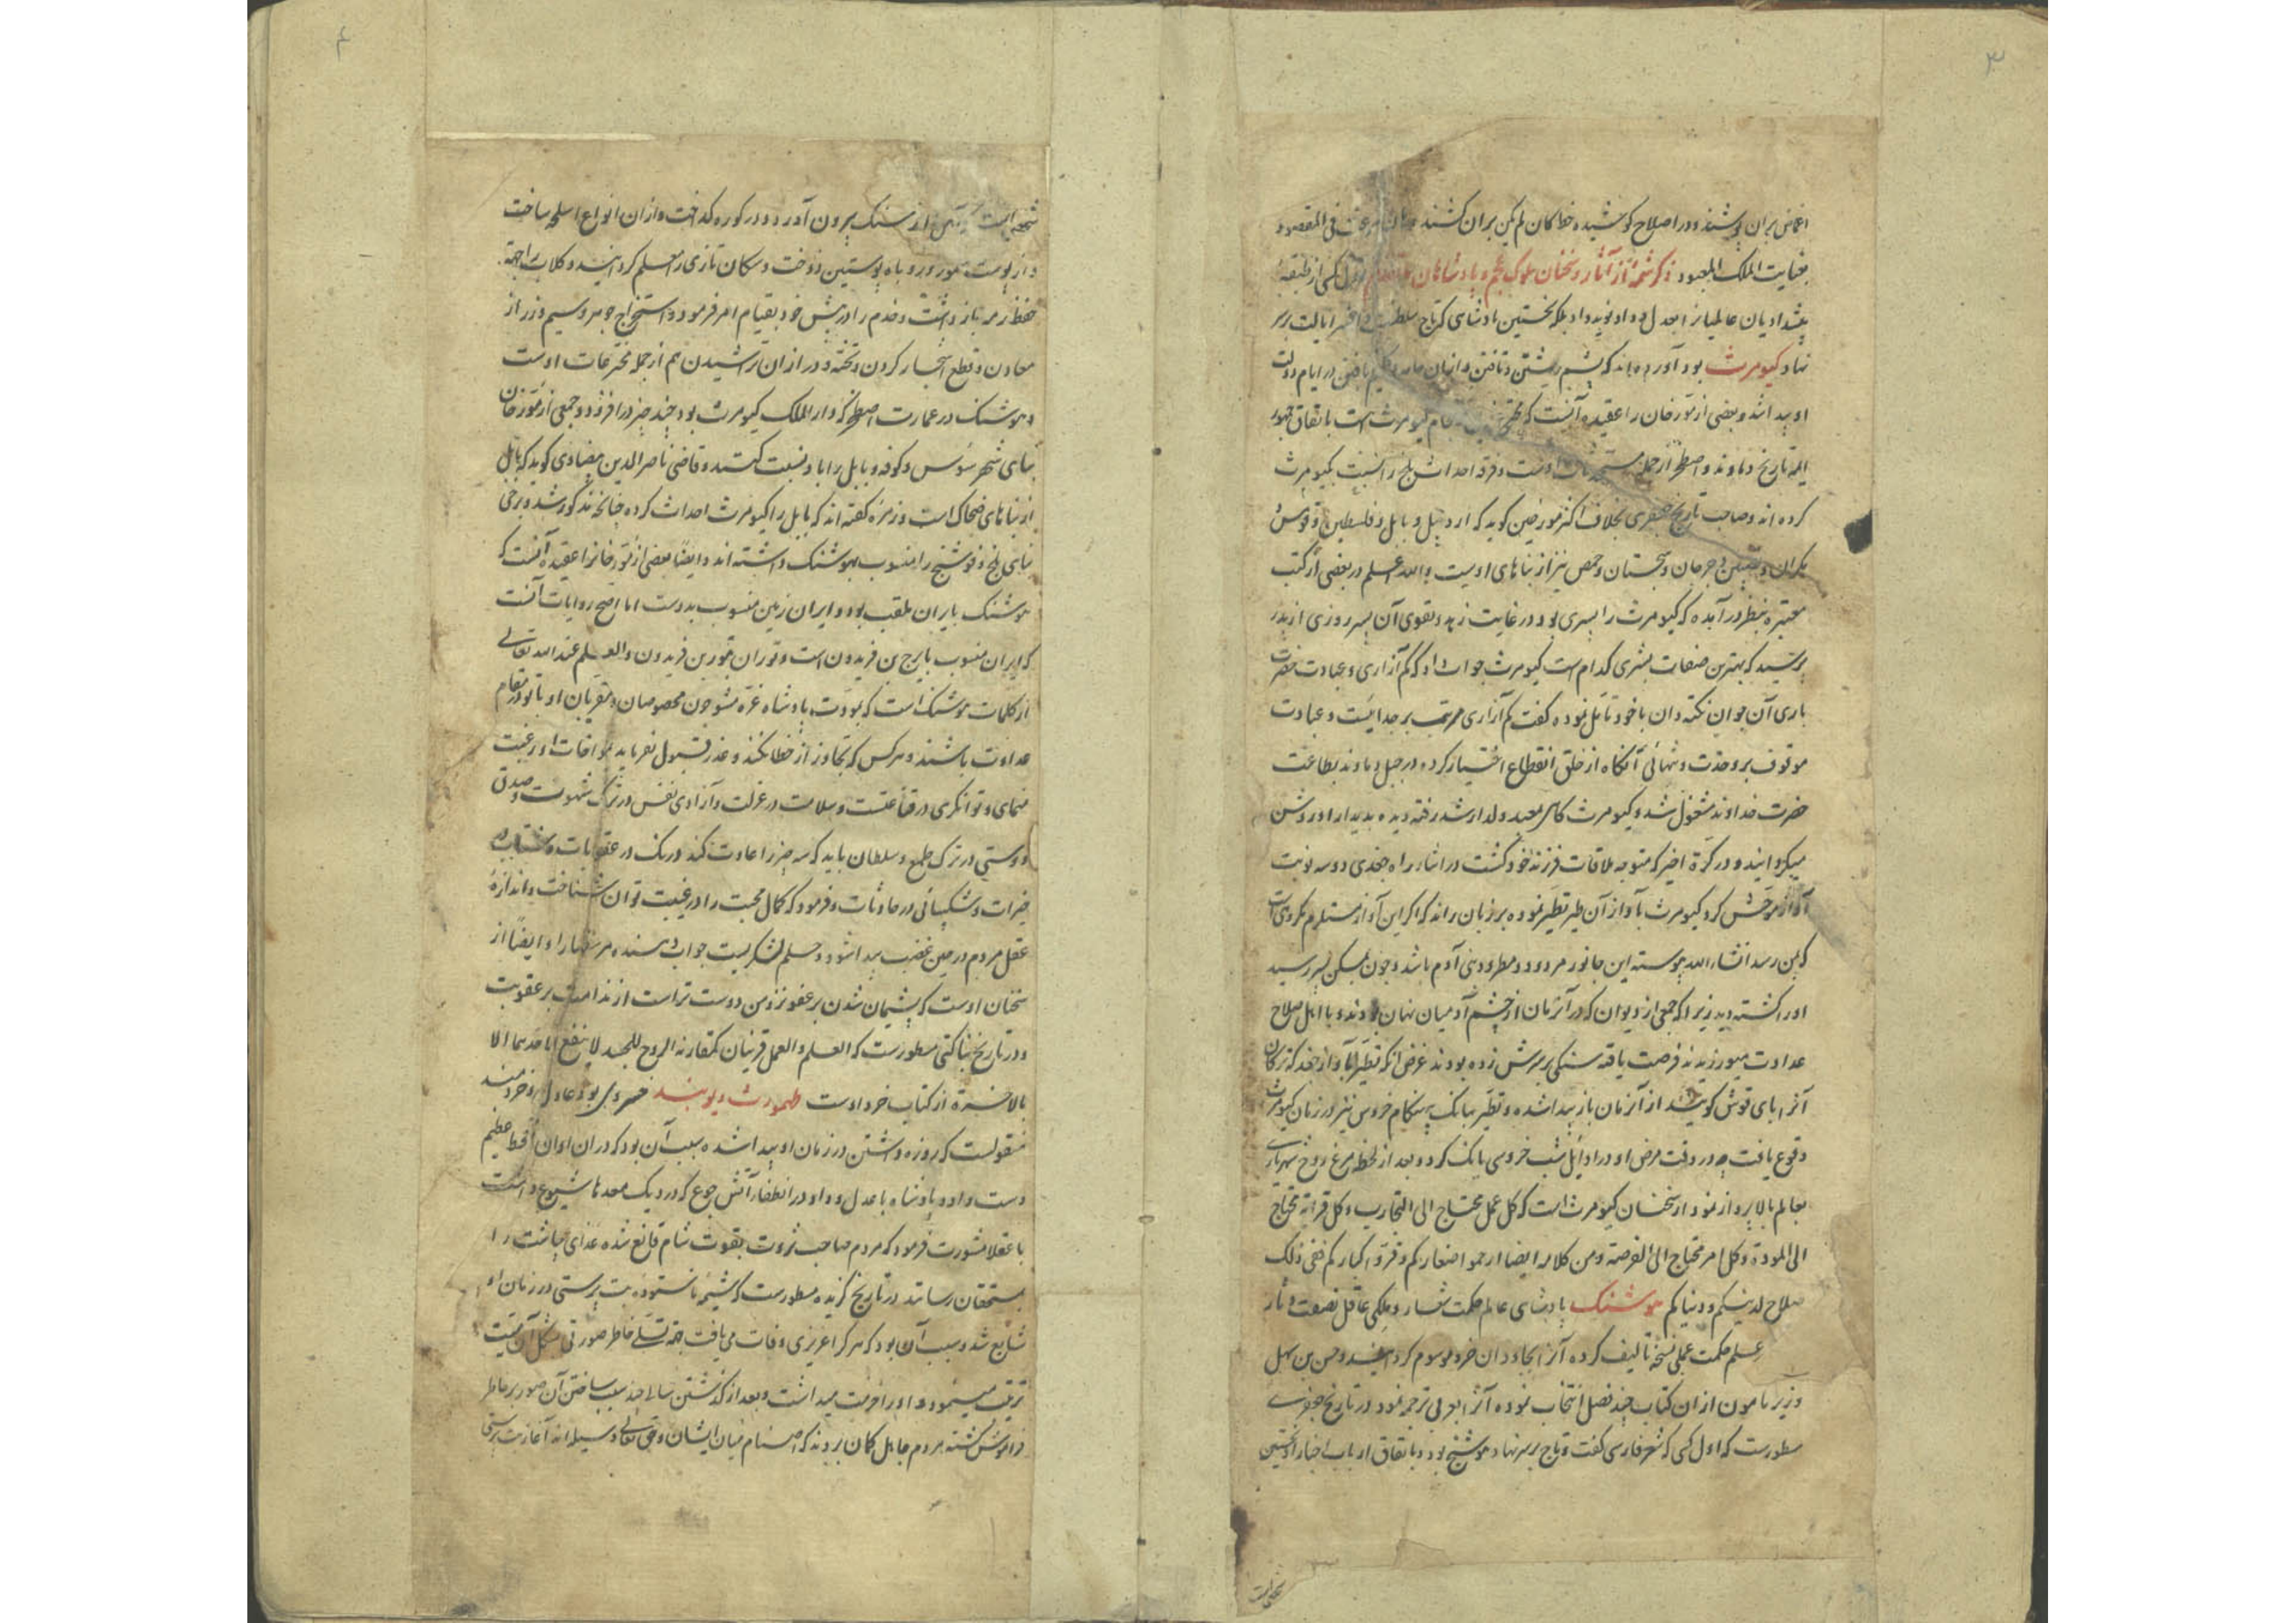 ۳
اغماض بران پوشند و در اصلاح کوشیده خطا کان لم یکن بران کشند فی المقصود
بعنایت الملک المعبود ذکر شمهٔ از آثار و سخنان ملوک عجم و پادشاهان اول کسی از طبقهٔ
پیشدادیان عالمیانرا بعدل و داد نوید داد بلکه نخستین پادشاهی که تاج سلطنت و افسر ایالت بر سر
نهاد کیومرث بود آورده‌اند که پشم رشتن و تافتن و ازان جامه و گلیم بافتن در ایام دولت
او پیدا شد و بعضی از مورخان را عقیده آنست که کیومرث است باتفاق جمهور
ایمه تاریخ دماوند و اصطخر از جمله اوست و فرقهٔ احداث بلخ را نسبت بکیومرث
کرده اند و صاحب تاریخ جعفری بخلاف اکثر مورخین گوید که اردبیل و بابل و فلسطین و قومس
مکران و جرجان و سجستان و حمص نیز از بناهای اوست والله اعلم در بعضی از کتب
معتبره بنظر در آمده که کیومرث را پسری بود در غایت زهد و تقوی آن پسر روزی از پدر
پرسید که بهترین صفات بشری کدام است کیومرث جواب داد که کم آزاری و عبادت حضرت
باری آن جوان نکته دان با خود تأمل نموده گفت کم آزاری مرتب بر جدائیست و عبادت
موقوف بر وحدت و تنهائی آنگاه از خلق انقطاع اختیار کرده در جبل دماوند بطاعت
حضرت خداوند مشغول شد و کیومرث گاهی بمعبد ولد ارشد رفته دیده بدیدار او روشن
میگردانید و در کرة اخیر که متوجه ملاقات فرزند خود گشت در اثناء راه جغدی دو سه نوبت
آواز موحش کرد کیومرث بآواز آن طیر تطیر نموده بر زبان راند که اگر این آواز مستلزم مکروهی است
که بمن رسد انشاء الله پیوسته این جانور مردود و مطرود بنی آدم باشد و چون بمسکن پسر رسید
او را کشته دید زیرا که جمعی از دیوان که در آنزمان از چشم آدمیان نهان بودند و با اهل صلاح
عداوت میورزیدند فرصت یافته سنگی بر سرش زده بودند غرض آنکه تطیر بآواز جغد که ترکان
آنرا بای قوش گویند از آنزمان باز پیدا شده و تطیر ببانک بیهنگام خروس نیز در زمان کیومرث
وقوع یافت چه در وقت مرض او در اوایل شب خروسی بانک کرد و بعد از لحظه مرغ روح شهریاری
بعالم بالا پرواز نمود از سخنان کیومرث است که کل عمل محتاج الی التجارب و کل قرابة محتاج
الی المودة و کل امر محتاج الی الفرصة و من کلامه ایضا ارحموا صغارکم و وقروا کبارکم ففی ذلک
صلاح لدینکم و دنیاکم هوشنک پادشاهی عالم حکمت شعار و ملکی عاقل نصفت دثار
علم حکمت عملی نسخهٔ تألیف کرده آنرا بجاودان خرد موسوم گردانید و حسن بن سهل
وزیر مامون از ان کتاب چند فصل انتخاب نموده آنرا بعربی ترجمه نمود در تاریخ جعفری
مسطورست که اول کسی که شعر فارسی گفت و تاج بر سر نهاد هوشنج بود و باتفاق ارباب اخبار او نخستین
شخصی است
۴
شخصی است که آهن از سنک بیرون آورد و در کوره گداخت و ازان انواع اسلحه ساخت
و از پوست سمور و روباه پوستین دوخت و سکان تازی را معلم گردانید و کلاب را جهة
حفظ رمه باز داشت و خدم را در پیش خود بقیام امر فرمود و استخراج جوهر و سیم و زر از
معادن و قطع اشجار کردن و تخته و در ازان تراشیدن هم از جمله مخترعات اوست
و هوشنک در عمارت اصطخر که دار الملک کیومرث بود چند چیز در افزود و جمعی از مورخان
بنای شهر سوس و کوفه و بابل را باو نسبت کنند و قاضی ناصر الدین بیضاوی گوید که بابل
از بناهای ضحاک است و زمرهٔ گفته اند که بابل را کیومرث احداث کرده چنانچه مذکور شد و برخی
بنای بلخ و فوشنج را منسوب بهوشنک داشته اند و ایضا بعضی از مورخانرا عقیده آنست که
هوشنک بایران ملقب بود و ایران زمین منسوب بدوست اما اصح روایات آنست
که ایران منسوب بایرج بن فریدون است و توران بتور بن فریدون والعلم عند الله تعالی
از کلمات هوشنک است که بدولت پادشاه غره مشو چون مخصوصان و مقربان او با تو در مقام
عداوت باشند و هر کس که تجاوز از خطا نکند و عذر قبول نفرماید بمواخات او رغبت
منمای و توانگری در قناعتست و سلامت در عزلت و آزادی نفس در ترک شهوت و صدق
دوستی در ترک طمع و سلطان باید که سه چیز را عادت کند درنک در عقوبات و شتاب در
خیرات و شکیبائی در حادثات و فرمود که کمال محبت را در غیبت توان شناخت و اندازهٔ
عقل مردم در حین غضب پیدا شود و حلم لشکریست جواب دهنده مر سفها را و ایضا از
سخنان اوست که پشیمان شدن بر عفو نزد من دوست تر است از ندامت بر عقوبت
و در تاریخ بناکتی مسطورست که العلم و العمل قرینان کمقارنة الروح للجسد لا ینفع احدهما الا
بالاخرة از کتاب خرد اوست طهمورث دیوبند خسروی بود عادل و خردمند
منقولست که روزه داشتن در زمان او پیدا شده سبب آن بود که دران اوان قحط عظیم
دست داد و پادشاه با عدل و داد در انطفاء آتش جوع که در دیک معدها شیوع داشت
با عقلا مشورت فرمود که مردم صاحب ثروت بقوت شام قانع شده غذای چاشت را
بمستحقان رسانند در تاریخ گزیده مسطورست که شیمهٔ ناستوده بت پرستی در زمان او
شایع شد و سبب آن بود که هر کرا عزیزی وفات می یافت جهة تسلی خاطر صورتی مشکل آن میت
ترتیب مینمود و او را حرمت میداشت و بعد از گذشتن سالی چند سبب ساختن آن صور بر خاطر
فراموش گشته مردم جاهل گمان بردند که اصنام میان ایشان و حق تعالی وسیله اند آغاز بت پرستی